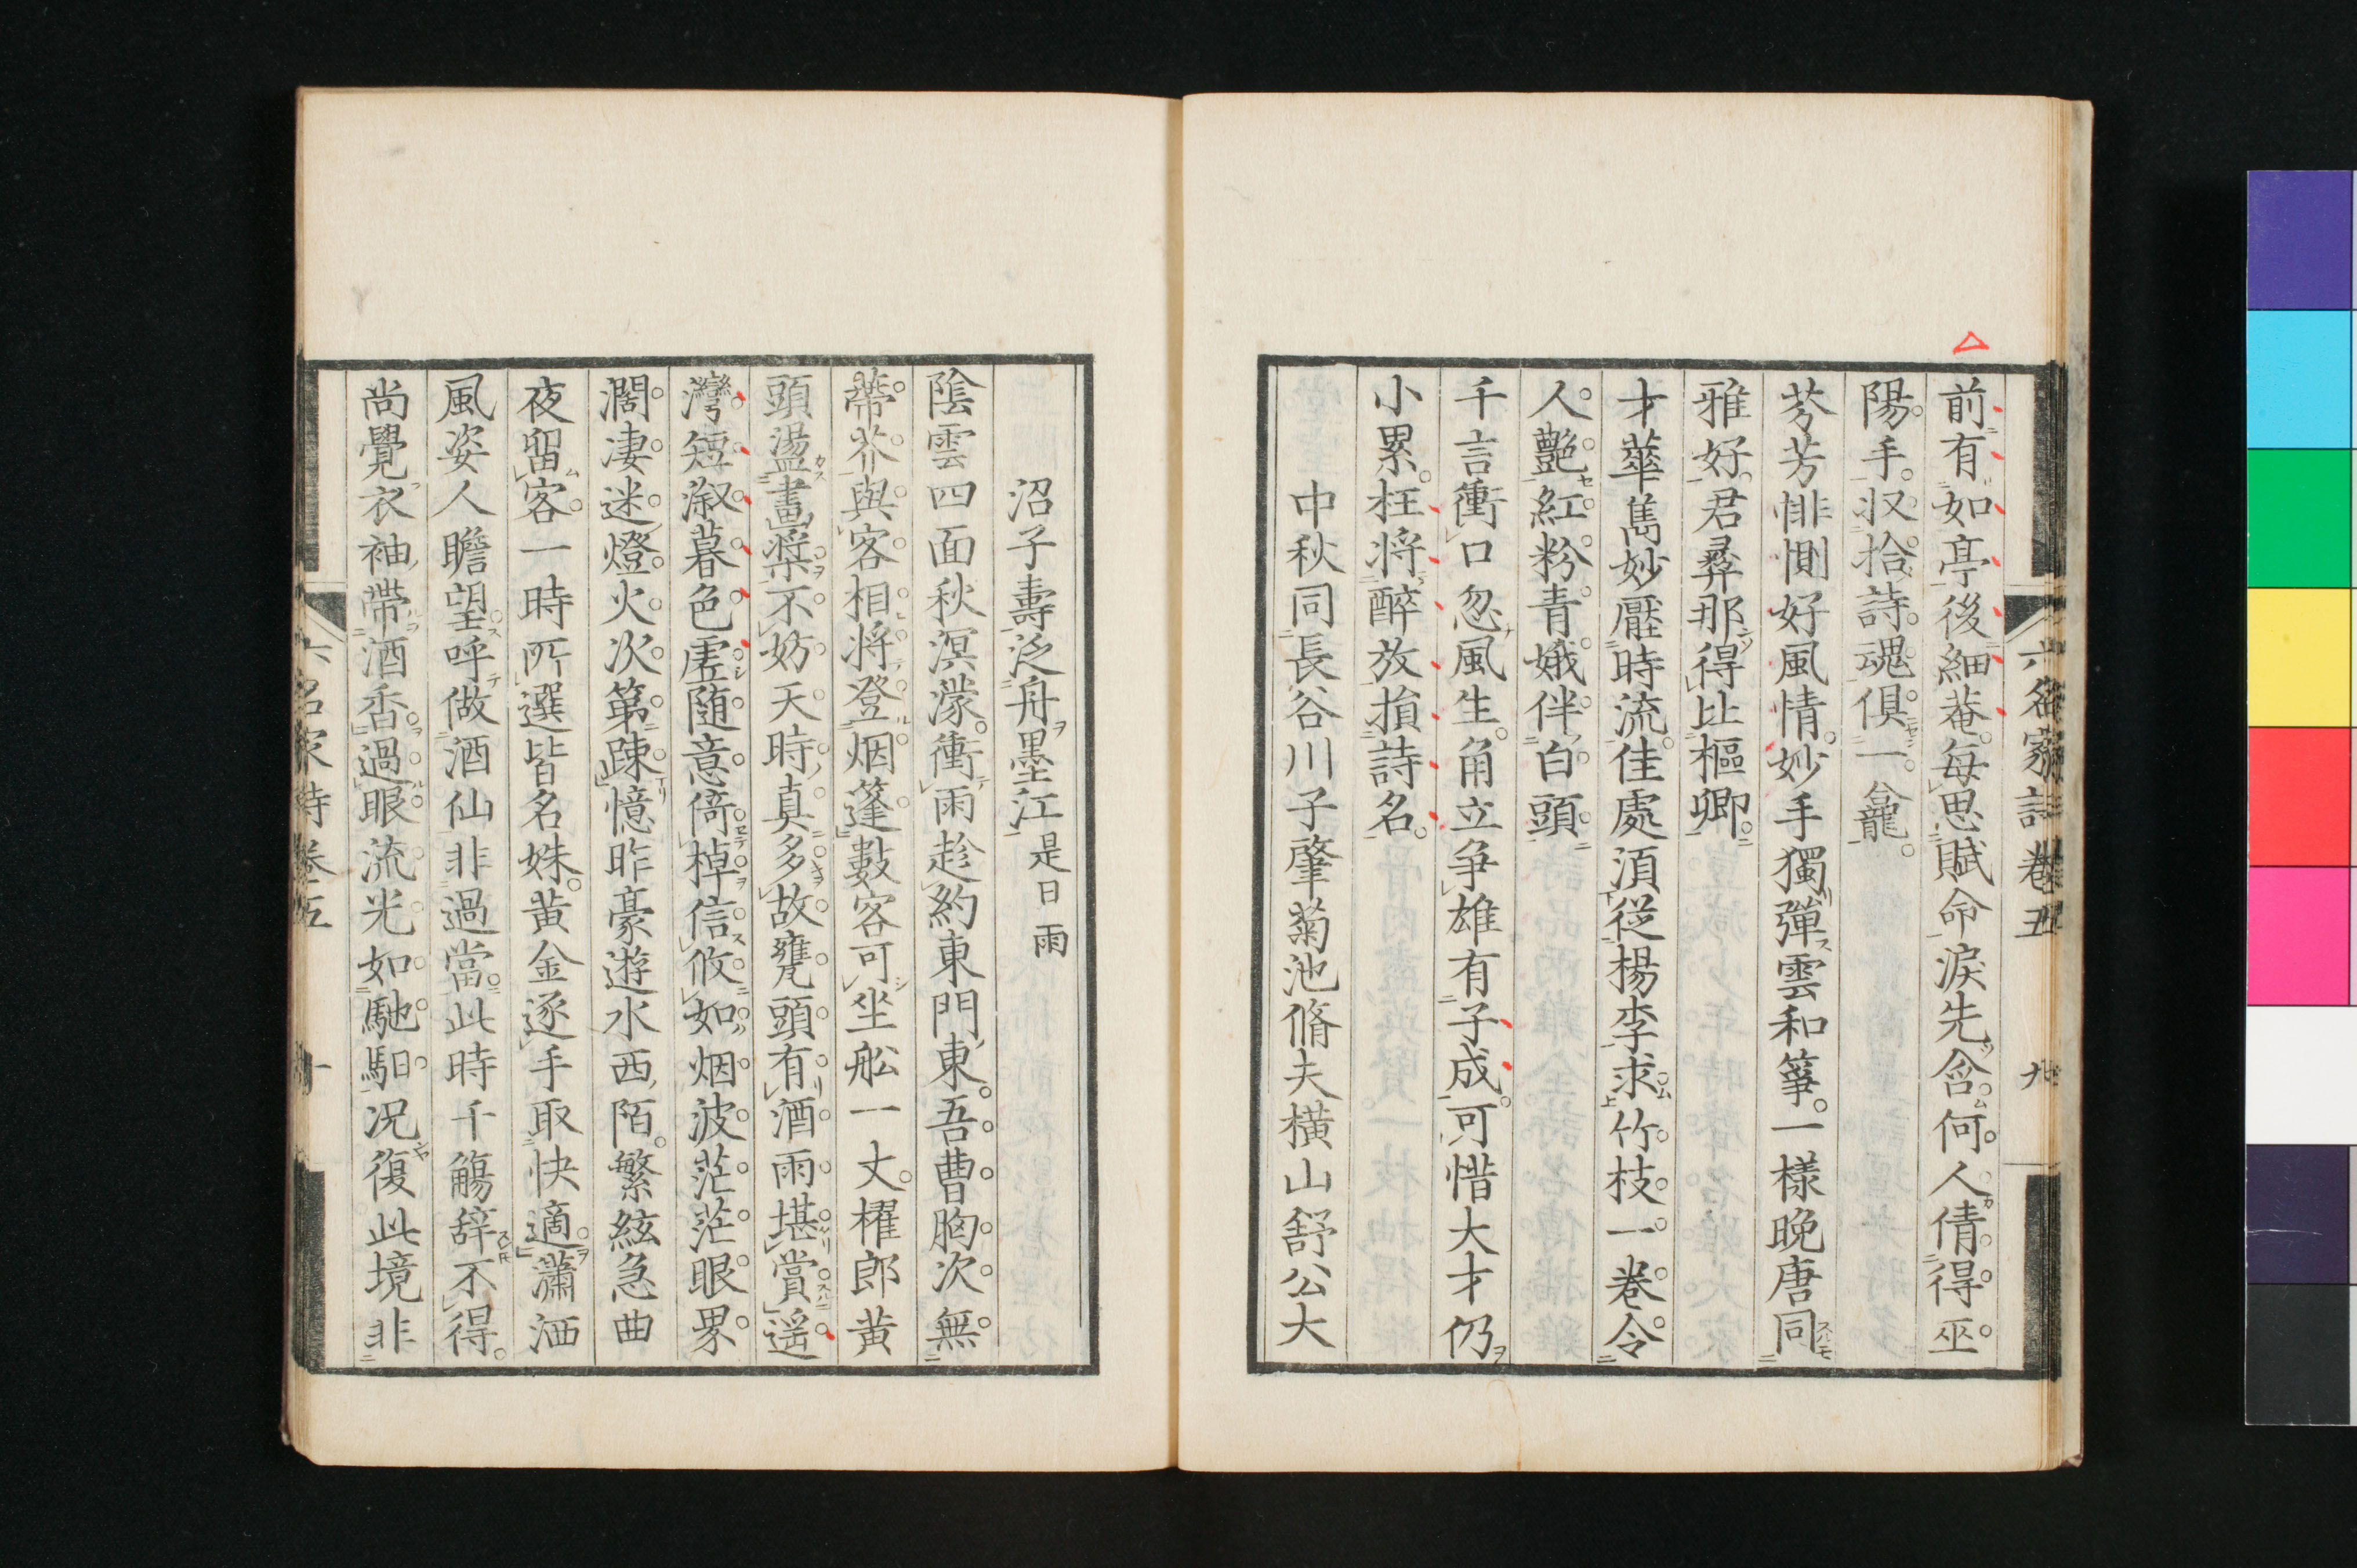 六名家詩 卷五 九
前有如亭後細菴每思賦命淚先含何人倩得巫
陽手収拾詩魂俱一龕
芬芳悱惻好風情妙手獨彈雲和箏一樣晚唐同
雅好君彝那得比樞卿
才華雋妙壓時流佳處湏從楊李求竹枝一卷令
人艷紅粉青娥伴白頭
千言衝口忽風生角立爭雄有子成可惜大才仍
小累枉將醉放損詩名
中秋同長谷川子肇菊池脩夫橫山舒公大
沼子壽泛舟墨江是日雨
陰雲四面秋溟濛衝雨趁約東門東吾曹胸次無
蔕芥與客相將登烟篷數客可坐舩一丈櫂郎黃
頭盪畫槳不妨天時真多故甕頭有酒雨堪賞遥
灣短漵暮色虛随意倚棹信攸如烟波茫茫眼界
濶凄迷燈火次第踈憶昨豪遊水西陌繁絃急曲
夜留客一時所選皆名姝黃金逐手取快適瀟洒
風姿人瞻望呼做酒仙非過當此時千觴辞不得
尚覺衣袖帶酒香過眼流光如馳馹况復此境非
六名家詩 卷五 十